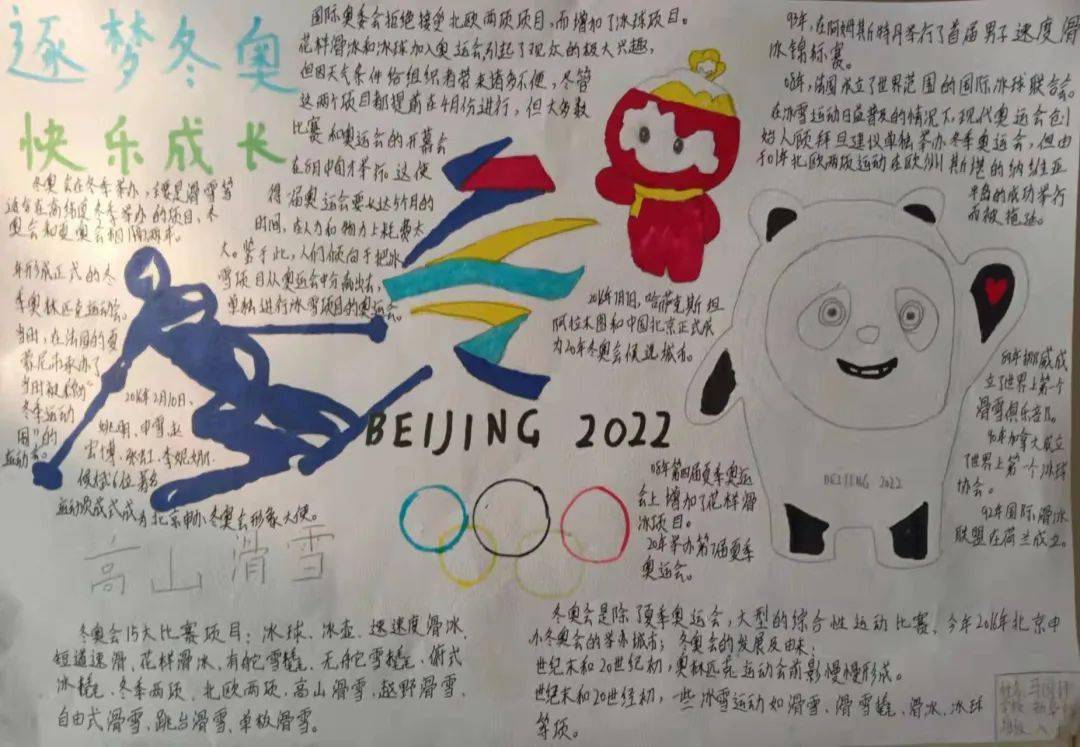 逐梦冬奥
快乐成长
国际奥委会拒绝接受北欧两项项目,而增加了冰球项目。
花样滑冰和冰球加入奥运会,引起了观众的极大兴趣,
但因天气条件给组织者带来诸多不便,尽管
这两个项目都提前在4月份进行,但大多数
比赛和奥运会的开幕会
这使
得
届奥运会要长达
月的
时间,在人力和物力上耗费太
大。鉴于此,人们倾向于把冰
雪项目从奥运会中分离出去,
单独进行冰雪项目的奥运会。
93年,在阿姆斯特丹举行了首届男子速度滑
冰锦标赛。
08年,法国成立了世界范围的国际冰球联合会。
在冰雪运动日益普及的情况下,现代奥运会创
始人顾拜旦建议单独举办冬季奥运会,但由
年北欧两项运动在欧洲斯堪的纳维亚
半岛的成功举行
而被拖延。
冬奥会在冬季举办,主要是滑雪等
适合在高纬度冬季举办的项目,冬
奥会和夏奥会相隔两年。
年形成正式的冬
季奥林匹克运动会。
当时,在法国的夏
蒙尼市承办了
当时被称为"
冬季运动
周"的
运动会。
2016年2月10日、
姚明、申雪、赵
宏博、张虹、李妮娜、
侯斌6位著名
运动员成式成为北京申办冬奥会形象大使。
高山滑雪
7月7日,哈萨克斯坦
阿拉木图和中国北京正式成
为
年冬奥会候选城市。
年挪威成
立了世界上第一个
滑雪俱乐部。
90年加拿大成立
了世界上第一个冰球
协会。
92年国际滑冰
联盟在荷兰成立。
BEIJING 2022
BEIJING 2022
08年第四届夏季奥运
会上增加了花样滑
冰项目。
20年举办第7届夏季
奥运会。
冬奥会15大比赛项目:冰球、冰壶、速速度滑冰、
短道速滑、花样滑冰、有舵雪橇、无舵雪橇、俯式
冰橇、冬季两项、北欧两项、高山滑雪、越野滑雪、
自由式滑雪、跳台滑雪、单板滑雪。
冬奥会是除了夏季奥运会,大型的综合性运动比赛、今年2016年北京申
办冬奥会的举办城市;冬奥会的发展及由来:
世纪末和20世纪初,奥林匹克运动会前影慢慢形成。
世纪末和20世纪初,一些冰雪运动如滑雪、滑雪橇、滑冰、冰球
等项。